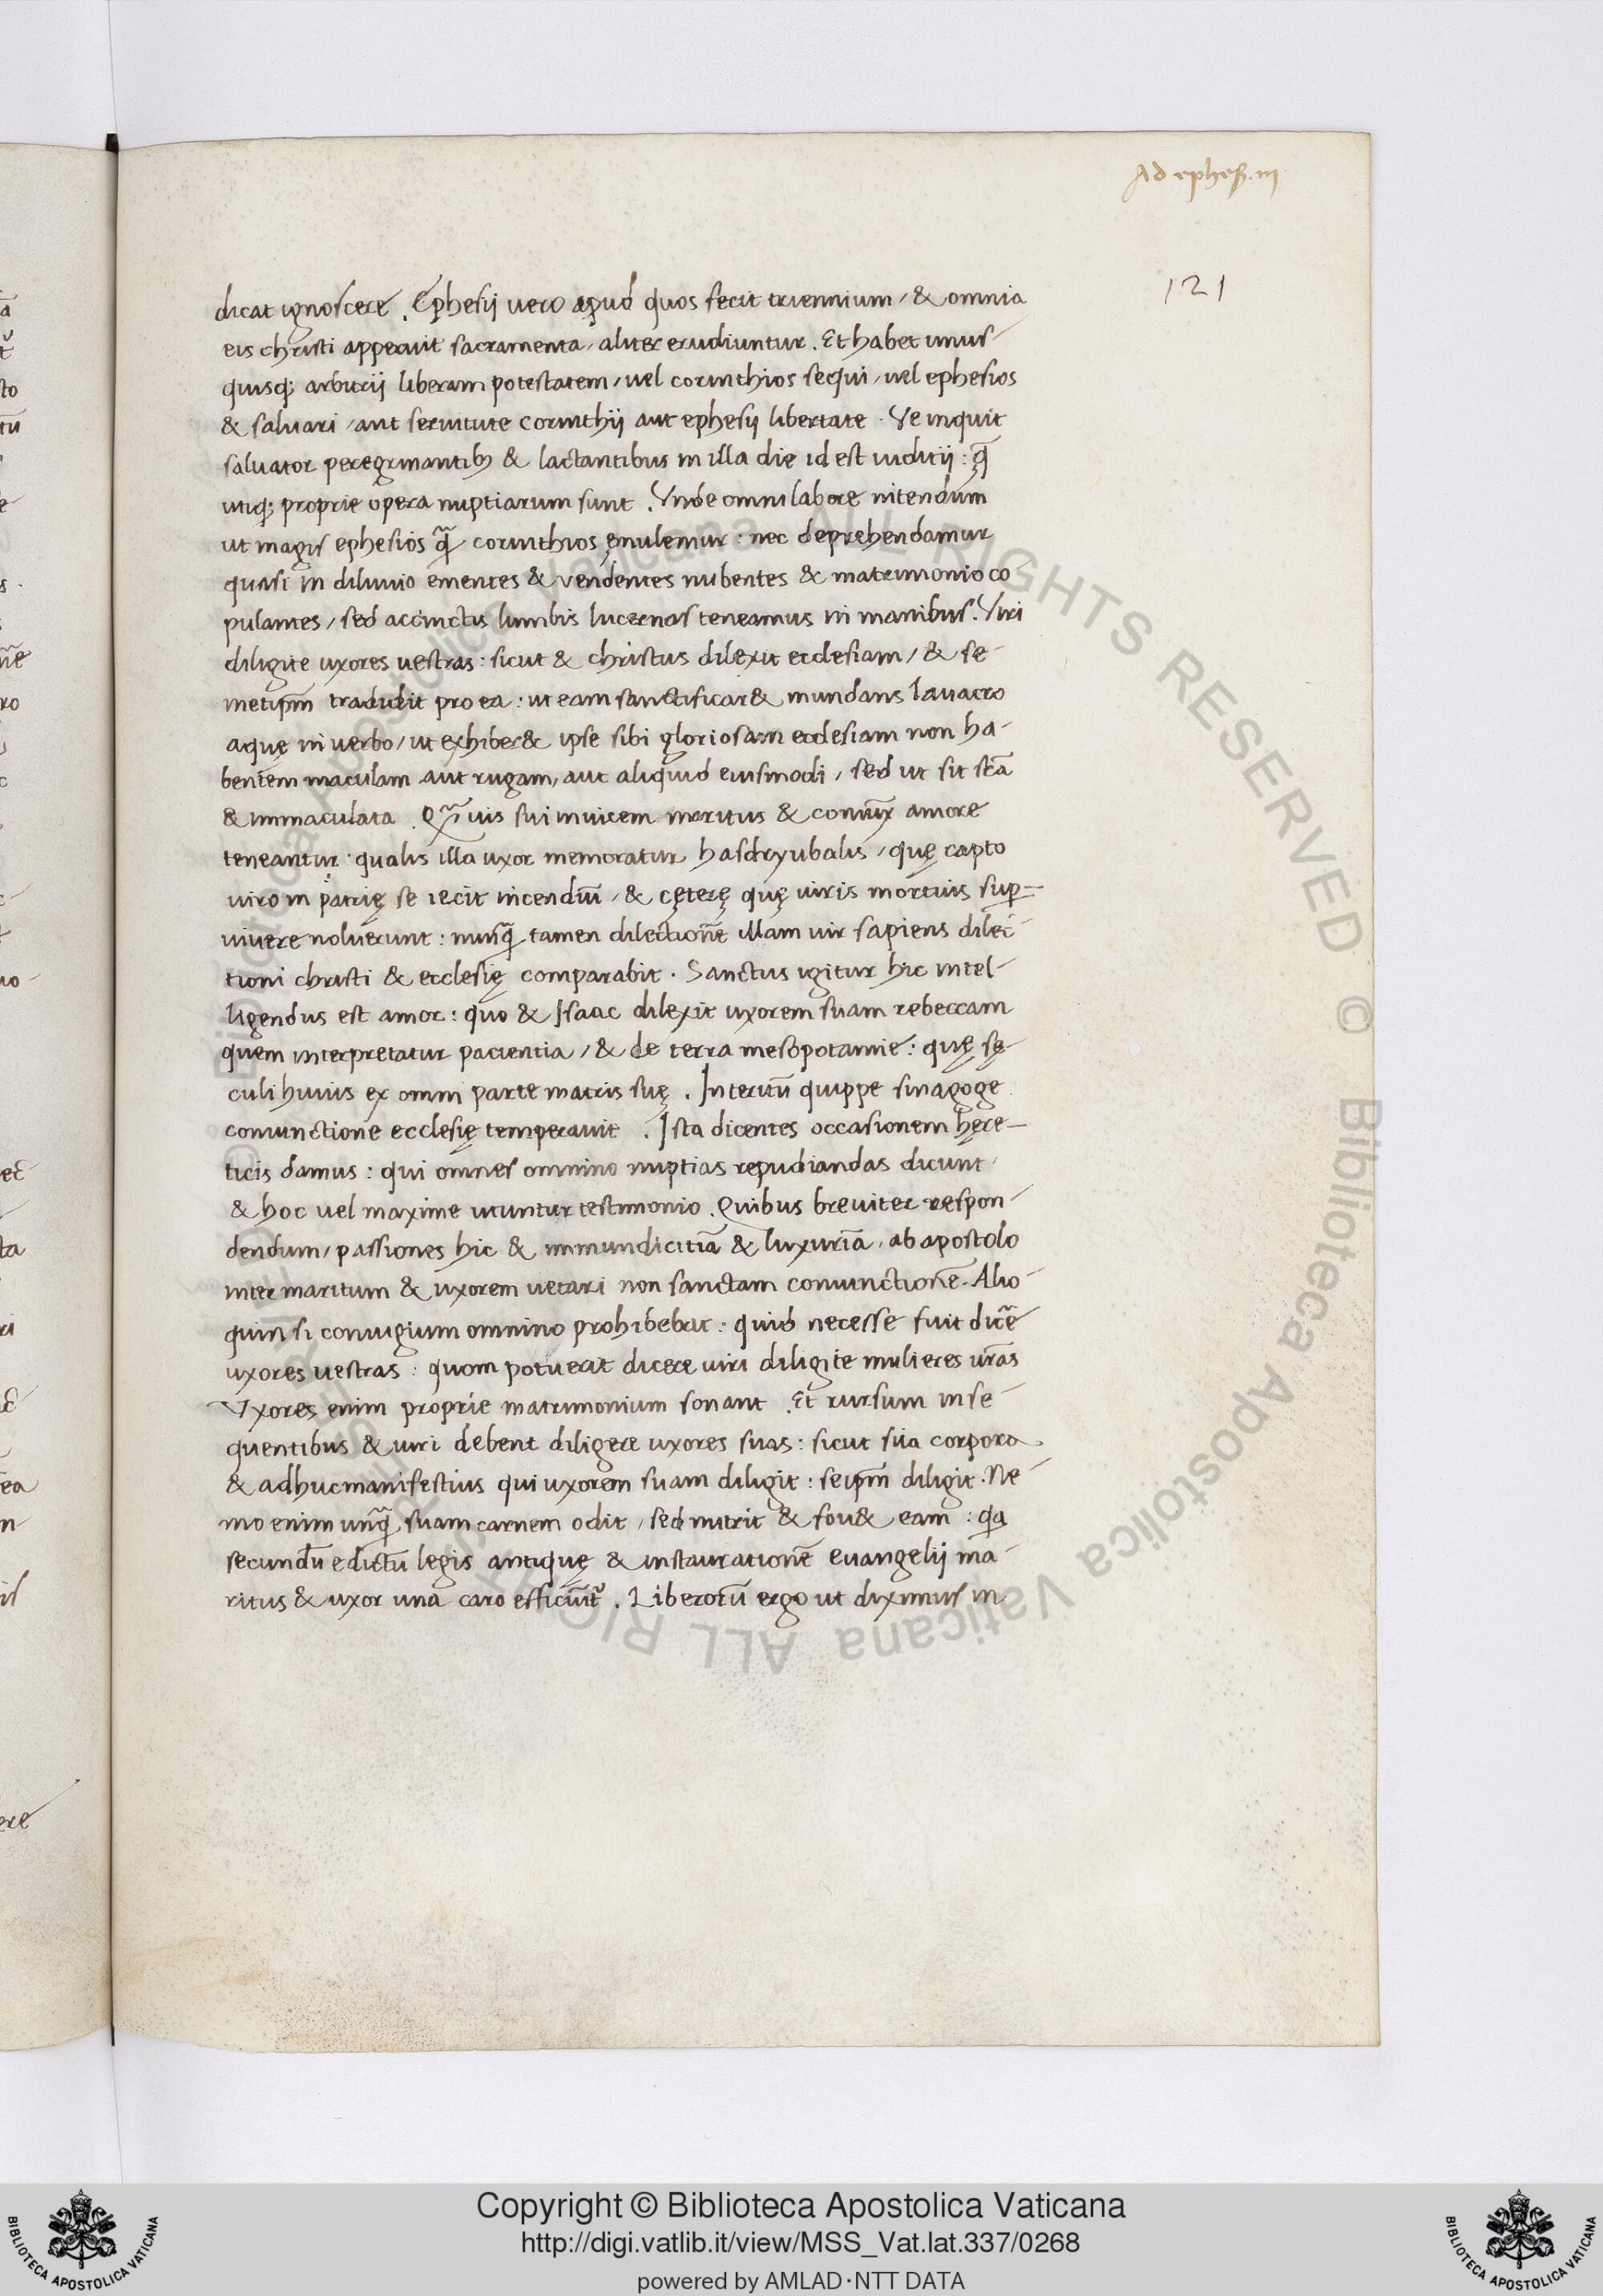 Ad ephes. iii
121
dicat ignoscere. Ephesij uero apud quos fecit triennium / & omnia
eis christi apperuit sacramenta / aliter erudiuntur. Et habet unus-
quisq; arbitrij liberam potestatem / uel corinthios sequi / uel ephesios
& saluari / aut seruitute corinthij aut ephesij libertate. Ve inquit
saluator peregrinantib; & lactantibus in illa die id est iuditij: q̃
utiq; proprie opera nuptiarum sunt. Vnde omni labore nitendum
ut magis ephesios q̃ corinthios ęmulemur: nec deprehendamur
quasi in diluuio ementes & vendentes nubentes & matrimonio co
pulantes / sed accinctis lumbis lucernas teneamus in manibus. Viri
diligite uxores uestras: sicut & christus dilexit ecclesiam / & se-
metip̄m tradidit pro ea: ut eam sanctificar& mundans lauacro
aquę in uerbo / ut exhiber& ipse sibi gloriosam ecclesiam non ha-
bentem maculam aut rugam / aut aliquid eiusmodi / sed ut sit sc̄a
& immaculata. Q̃uis sui inuicem maritus & coniūx amore
teneantur: qualis illa uxor memoratur hasdryubalis / quę capto
uiro in patrię se iecit incendiū / & cęterę quę uiris mortuis sup̱-
uiuere noluerunt: nunq̃ tamen dilectionē illam uir sapiens dilec-
tioni christi & ecclesię comparabit. Sanctus igitur hic intel-
ligendus est amor: quo & Isaac dilexit uxorem suam rebeccam
quem interpretatur pacientia / & de terra mesopotamie: quę sę
culi huius ex omni parte matris suę. Interitū quippe sinagoge
coniunctione ecclesię temperauit. Ista dicentes occasionem hęre-
ticis damus: qui omnes omnino nuptias repudiandas dicunt
& hoc uel maxime utuntur testimonio. Quibus breuiter respon-
dendum / passiones hic & immundicitiā & luxuriā / ab apostolo
inter maritum & uxorem uetari non sanctam coniunctionē. Alio-
quin si coniugium omnino prohibebat: quid necesse fuit dicē
uxores uestras: quom potuerat dicere uiri diligite mulieres ur̄as
Vxores enim proprie matrimonium sonant. Et rursum in se-
quentibus & uiri debent diligere uxores suas: sicut sua corpora
& adhuc manifestius qui uxorem suam diligit: seip̄m diligit. Ne-
mo enim unq̃ suam carnem odit / sed nutrit & fou& eam: qa
secundū edictū legis antiquę & instaurationē euangelij ma-
ritus & uxor una caro efficiūt᷑. Liberorū ergo ut diximus in
Copyright © Biblioteca Apostolica Vaticana
http://digi.vatlib.it/view/MSS_Vat.lat.337/0268
powered by AMLAD·NTT DATA
BIBLIOTECA APOSTOLICA VATICANA
BIBLIOTECA APOSTOLICA VATICANA
© Biblioteca Apostolica Vaticana ALL RIGHTS RESERVED